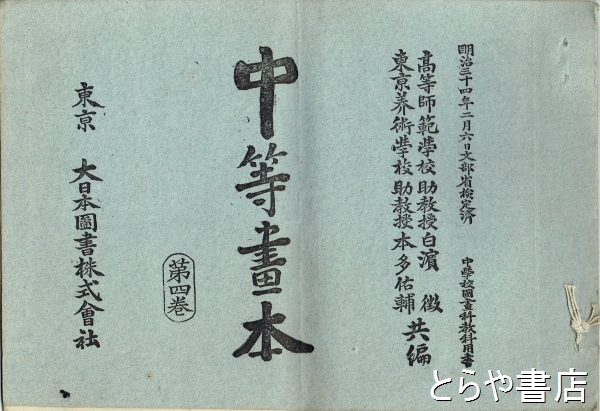 明治三十四年二月六日文部省檢定濟
中學校圖畫科教科用書
高等師範學校助教授白濱徴
東京美術學校助教授本多佑輔
共編
中等畫本
第四卷
東京 大日本圖書株式會社
とらや書店